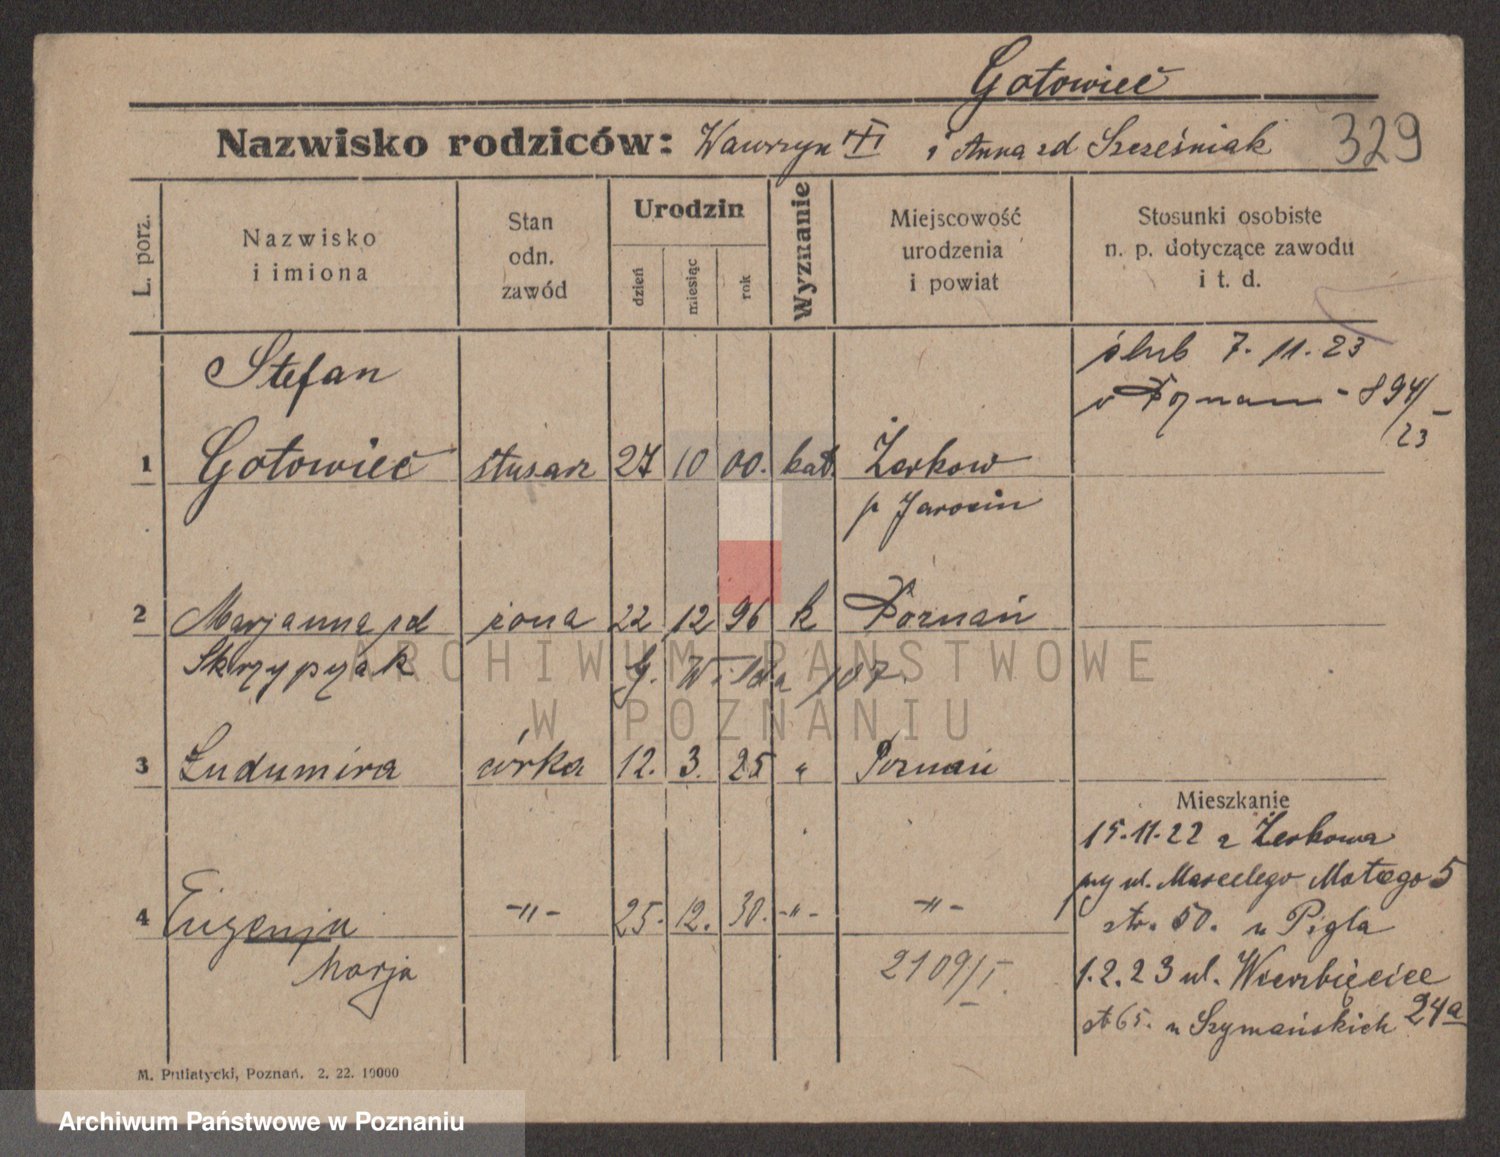 Gotowieć
Nazwisko rodziców: Wawrzyn i Anna zd Szcześniak 329
L. porz.
Nazwisko
i imiona
Stan
odn.
zawód
Urodzin
dzień
miesiąc
rok
Wyznanie
Miejscowość
urodzenia
i powiat
Stosunki osobiste
n. p. dotyczące zawodu
i t. d.
ślub 7.11.23
w Poznan - 894/
23
Stefan
1 Gotowieć ślusarz 27 10 00. kat. Żerkow
p Jarocin
2 Marjanna zd żona 22 12 96 k Poznań
Skrzypczak G. Wilda 107.
3 Ludumira córka 12. 3. 25 " Poznań
4 Eugenja -"- 25. 12. 30. -"- -"-
Marja
2109/I.
Mieszkanie
15.11.22 z Żerkowa
przy ul. Marcelego Motego 5
str. 50. u Pigla
1.2.23 ul. Wierzbięcice
24a
st 65. u Szymańskich
M. Putiatycki, Poznań. 2. 22. 10000
ARCHIWUM PAŃSTWOWE
W POZNANIU
Archiwum Państwowe w Poznaniu